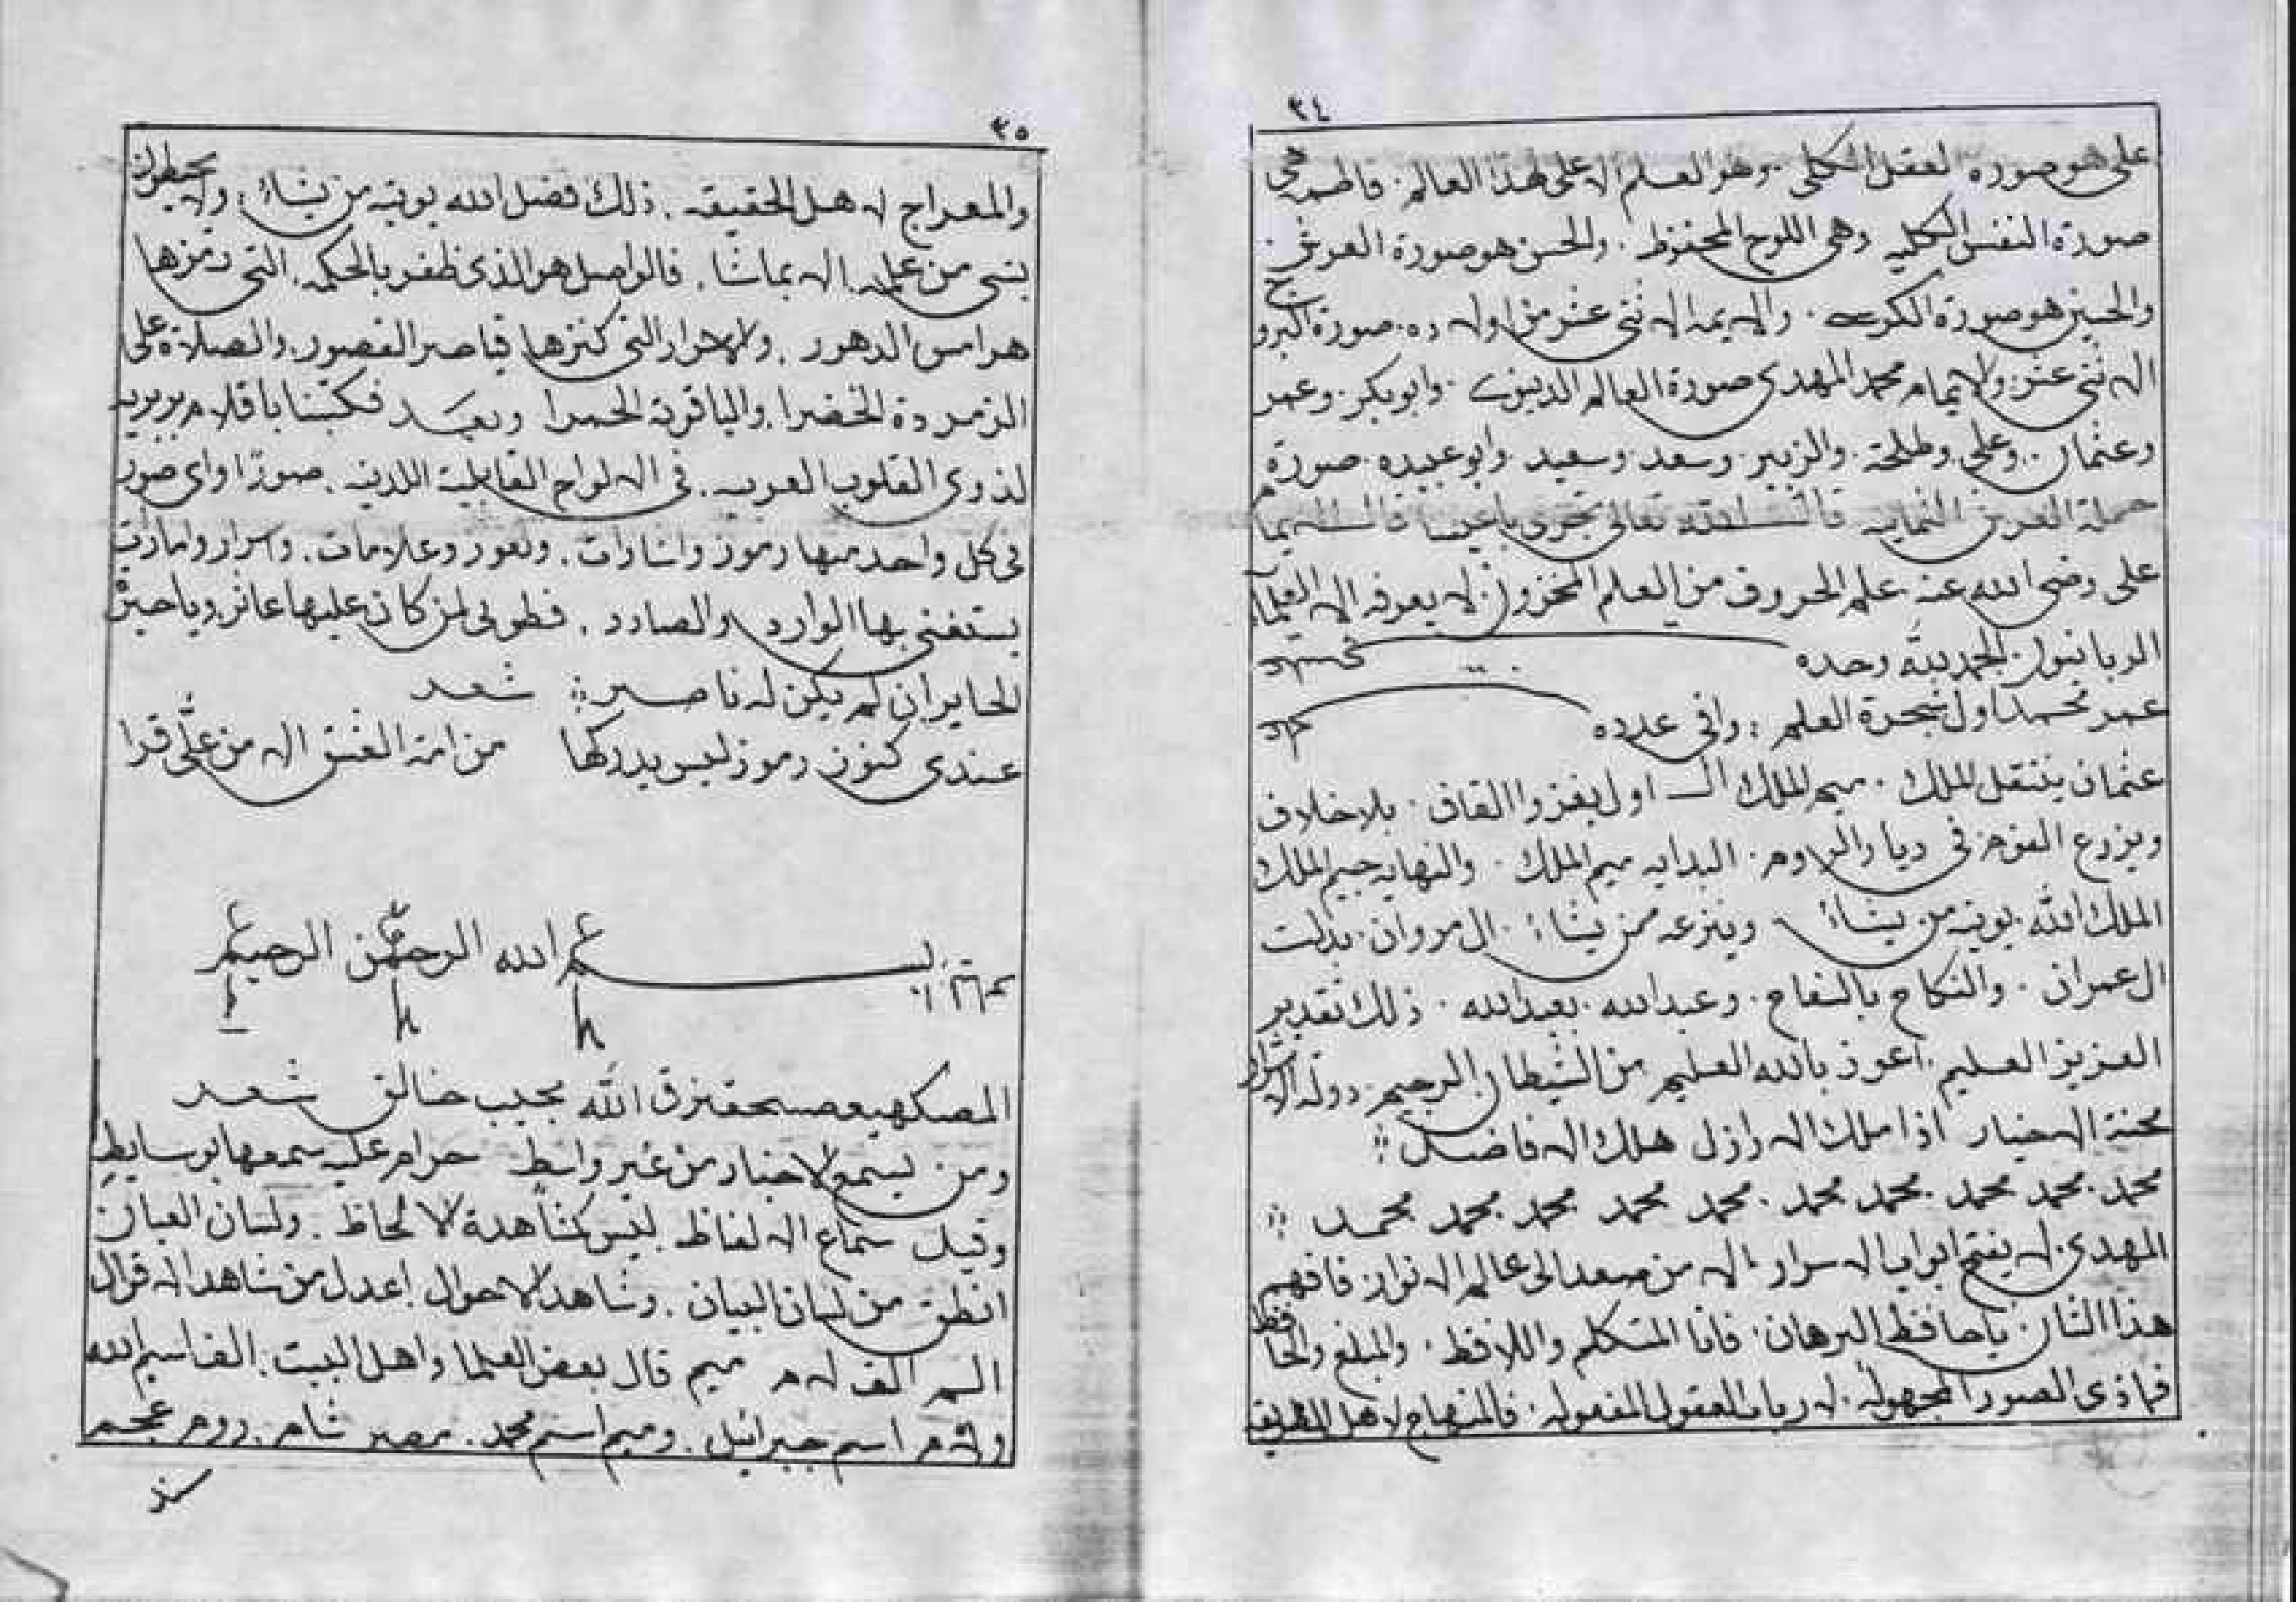 ٣٤
على هو صوره لعقل الكلى . وهو العلم الاعلى لهذا العالم . فاطمه هى
صورة النفس الكليه وهى اللوح المحفوظ . والحسن هو صورة العرش .
والحسين هو صورة الكرسى . والايمه الاثنى عشر من اولاده . صورة البروج
الاثنى عشر . والامام محمد المهدى صورة العالم الدنيوى . وابوبكر . وعمر
وعثمان . وعلى . وطلحة . والزبير . وسعد . وسعيد . وابو عبيده . صورة
حملة العرش الثمانيه قال الله تعالى تجرى باعيننا قال الامام
على رضى الله عنه علم الحروف من العلم المخزون لا يعرفه الا العلما
الربانيون . الحمد لله وحده
عمر محمد اول شجرة العلم : وافى عدده
عثمان ينتقل الملك . ميم الملك الـ اول يغزوا القاف . بلا خلاف
ويزرع الفوم فى ديار الروم . البدايه ميم الملك . والنهايه جيم الملك
الملك لله يوتيه من يشاء وينزعه ممن يشاء . ال مروان . بدلت
ال عمران . والنكاح بالسفاح . وعبد الله . بعبد الله . ذلك تقدير
العزيز العليم . اعوذ بالله العليم من الشيطان الرجيم . دولة الاشرار
محنة الاخيار اذا ملك الاراذل هلك الافاضل
محمد . محمد محمد . محمد محمد . محمد محمد محمد محمد محمد
المهدى لا يفتح ابواب الاسرار الا من صعد الى عالم الانوار فافهم
هذا الشان يا حافظ البرهان . فانا المتكلم واللافظ . والمبلغ والحافظ
فماذى الصور المجهوله . لارباب العقول المغفوله . فالمنهاج لاهل الطريقه
٣٥
والمعراج لاهل الحقيقه . ذلك فضل الله يوتيه من يشاء : ولا يحيطون
بشى من علمه الا بماشا . فالواصل هو الذى ظفر بالحكمه . التى رمزها
هرامس الدهور . والاحرار التى كنزها قياصر القصور . والصلاة على
الزمردة الخضرا . والياقوتة الحمرا وبعد فكتبنا باقلام
لذوى القلوب العربيه . فى الالواح القابلية اللدنيه . صورا واى صور
فى كل واحد منها رموز واشارات . ولغوز وعلامات . واسرار وامارات
يستغنى بها الوارد والصادر . فطوبى لمن كان عليها عاثر . ويا حيرة
الحاير ان لم يكن له ناصر شعر
عندى كنوز رموز ليس يدركها من امة العشق الا من على قرا
بسم الله الرحمن الرحيم
المصكهيعصحمقنرق الله مجيب خالق شعر
ومن يسمع الاخبار من غير واسط حرام عليه سمعها بوسايط
وقيل سماع الالفاظ ليس كمشاهدة الالحاظ . ولسان العيان
انطق من لسان البيان . وشاهد الاحوال اعدل من شاهد الاقوال
الم الف لام ميم قال بعض العلما واهل البيت . الف اسم الله
ولام اسم جبرائيل . وميم اسم محمد . مصر . شام . روم . عجم